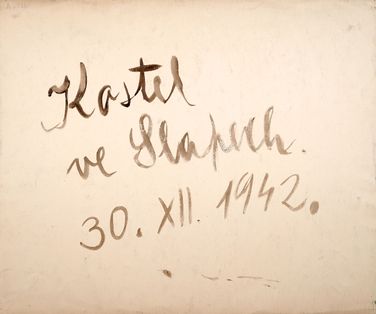 Kostel
ve Slapech.
30. XII. 1942.